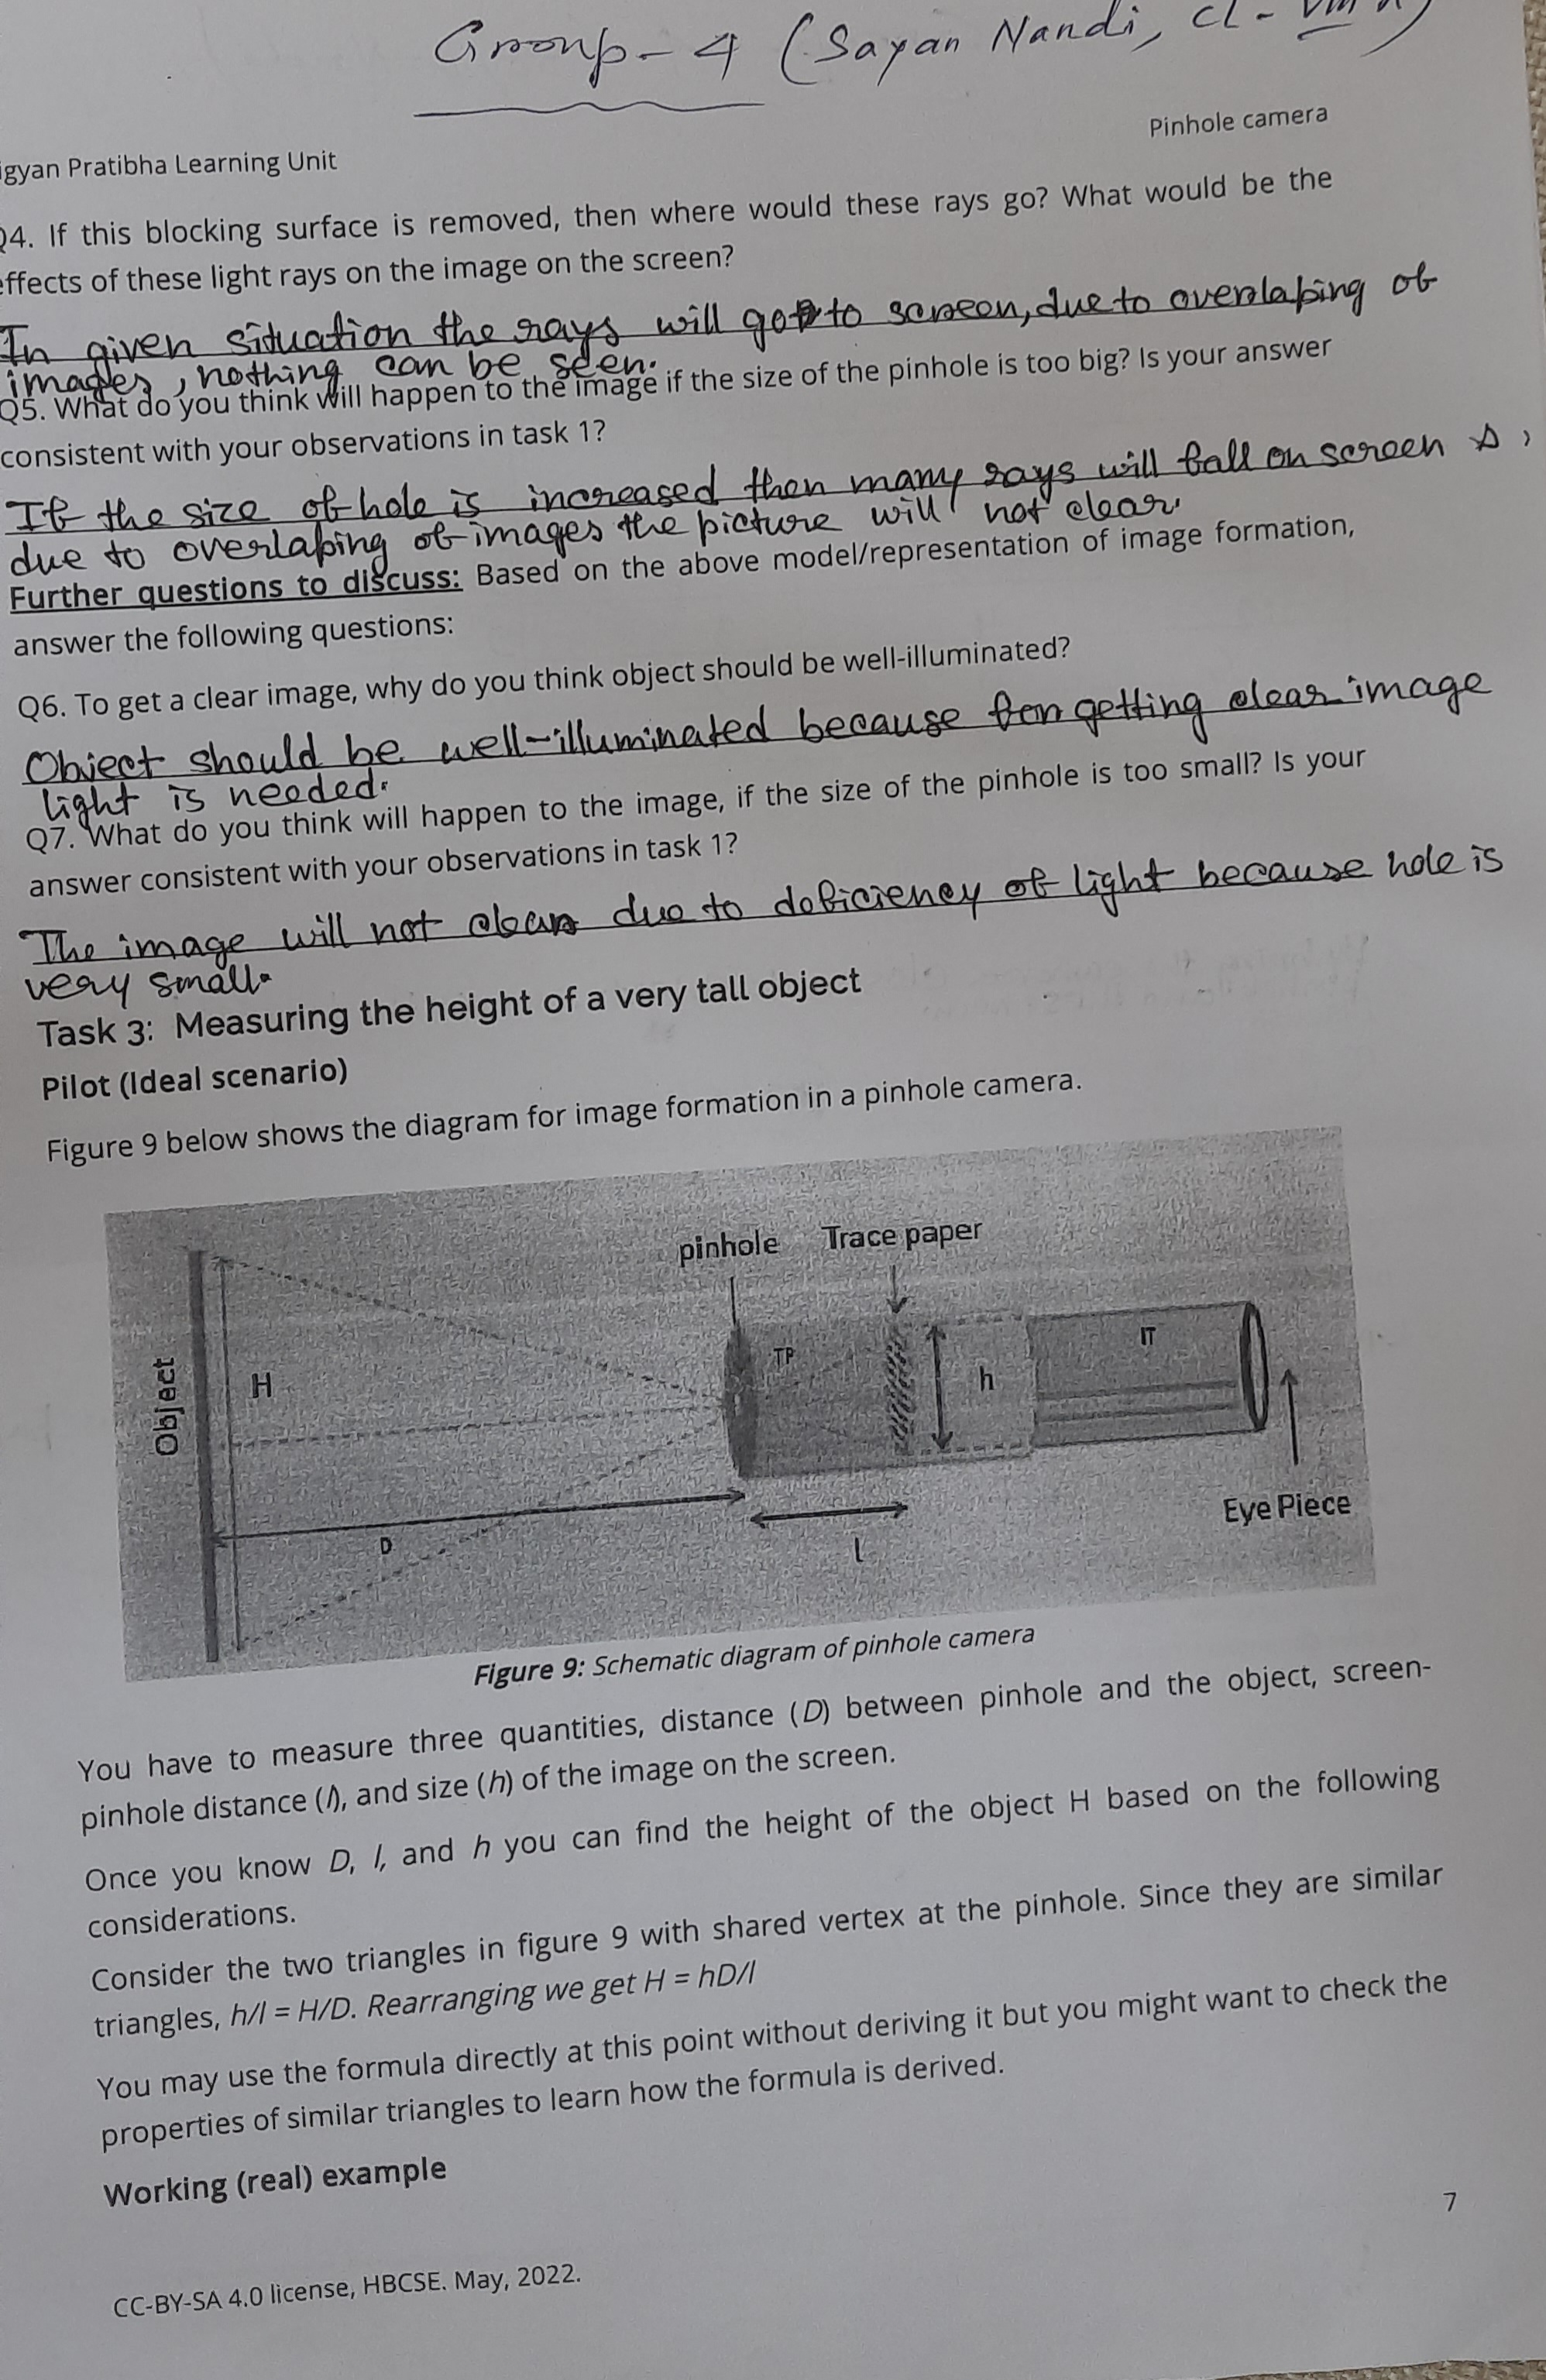 Group - 4 (Sayan Nandi, cl - VIII
Pinhole camera
igyan Pratibha Learning Unit
Q4. If this blocking surface is removed, then where would these rays go? What would be the
effects of these light rays on the image on the screen?
In given situation the rays will go to screen, due to overlaping of
images, nothing can be seen.
Q5. What do you think will happen to the image if the size of the pinhole is too big? Is your answer
consistent with your observations in task 1?
If the size of hole is increased then many rays will fall on screen s,
due to overlaping of images the picture will not clear.
Further questions to discuss: Based on the above model/representation of image formation,
answer the following questions:
Q6. To get a clear image, why do you think object should be well-illuminated?
Object should be well-illuminated because for getting clear image
light is needed.
Q7. What do you think will happen to the image, if the size of the pinhole is too small? Is your
answer consistent with your observations in task 1?
The image will not clear due to deficiency of light because hole is
very small.
Task 3: Measuring the height of a very tall object
Pilot (Ideal scenario)
Figure 9 below shows the diagram for image formation in a pinhole camera.
pinhole Trace paper
Object
H
TP
h
IT
D
l
Eye Piece
Figure 9: Schematic diagram of pinhole camera
You have to measure three quantities, distance (D) between pinhole and the object, screen-
pinhole distance (l), and size (h) of the image on the screen.
Once you know D, l, and h you can find the height of the object H based on the following
considerations.
Consider the two triangles in figure 9 with shared vertex at the pinhole. Since they are similar
triangles, h/l = H/D. Rearranging we get H = hD/l
You may use the formula directly at this point without deriving it but you might want to check the
properties of similar triangles to learn how the formula is derived.
Working (real) example
7
CC-BY-SA 4.0 license, HBCSE. May, 2022.